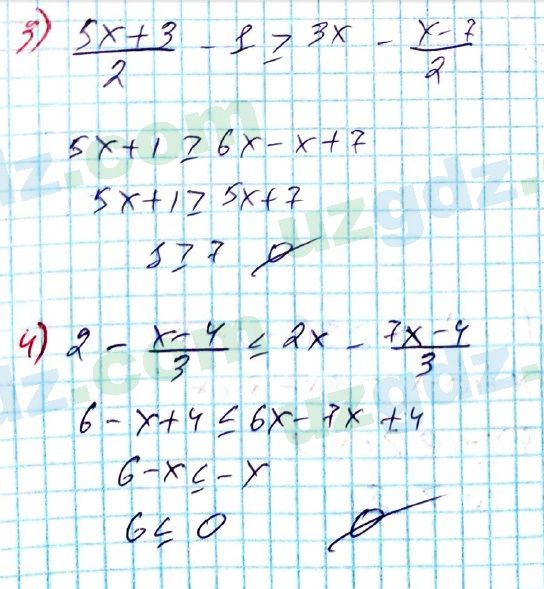 3) (5x+3)/2 - 1 ≥ 3x - (x-7)/2
5x+1 ≥ 6x-x+7
5x+1 ≥ 5x+7
1 ≥ 7 ∅
4) 2 - (x-4)/3 ≤ 2x - (7x-4)/3
6-x+4 ≤ 6x-7x+4
6-x ≤ -x
6 ≤ 0 ∅
uzgdz.com